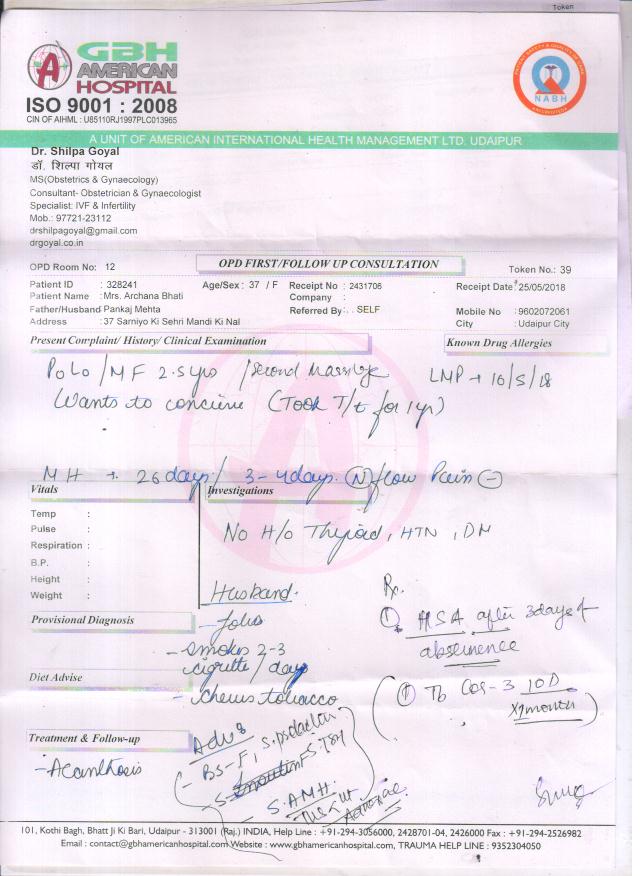 Token
GBH
AMERICAN
HOSPITAL
ISO 9001 : 2008
CIN OF AIHML : U85110RJ1997PLC013965
NABH
A UNIT OF AMERICAN INTERNATIONAL HEALTH MANAGEMENT LTD. UDAIPUR
Dr. Shilpa Goyal
डॉ. शिल्पा गोयल
MS(Obstetrics & Gynaecology)
Consultant- Obstetrician & Gynaecologist
Specialist: IVF & Infertility
Mob.: 97721-23112
drshilpagoyal@gmail.com
drgoyal.co.in
OPD Room No: 12 OPD FIRST/FOLLOW UP CONSULTATION Token No.: 39
Patient ID : 328241 Age/Sex : 37 / F Receipt No : 2431706 Receipt Date : 25/05/2018
Patient Name : Mrs. Archana Bhati Company :
Father/Husband Pankaj Mehta Referred By : . SELF Mobile No :9602072061
Address : 37 Sarniyo Ki Sehri Mandi Ki Nal City : Udaipur City
Present Complaint/ History/ Clinical Examination Known Drug Allergies
P0L0 / MF 2.5yrs / second marriage LMP → 10/5/18
Wants to concieve (Took T/t for 1yr)
MH → 26 days / 3-4days. (N) flow Pain (-)
Vitals Investigations
Temp :
Pulse :
Respiration :
B.P. :
Height :
Weight :
No H/o Thyroid, HTN, DM
Husband. Rx.
Provisional Diagnosis
① HSA after 3days of
- smokes 2-3 absinence
cigrette / day
Diet Advise
- chews tobacco
① Tb CoQ-3 10D
x1month
Treatment & Follow-up
- Acanthosis
Adv:
- BS-F, S.prolactin
S.TSH
S. AMH.
101, Kothi Bagh, Bhatt Ji Ki Bari, Udaipur - 313001 (Raj.) INDIA, Help Line : +91-294-3056000, 2428701-04, 2426000 Fax : +91-294-2526982
Email : contact@gbhamericanhospital.com Website : www.gbhamericanhospital.com, TRAUMA HELP LINE : 9352304050